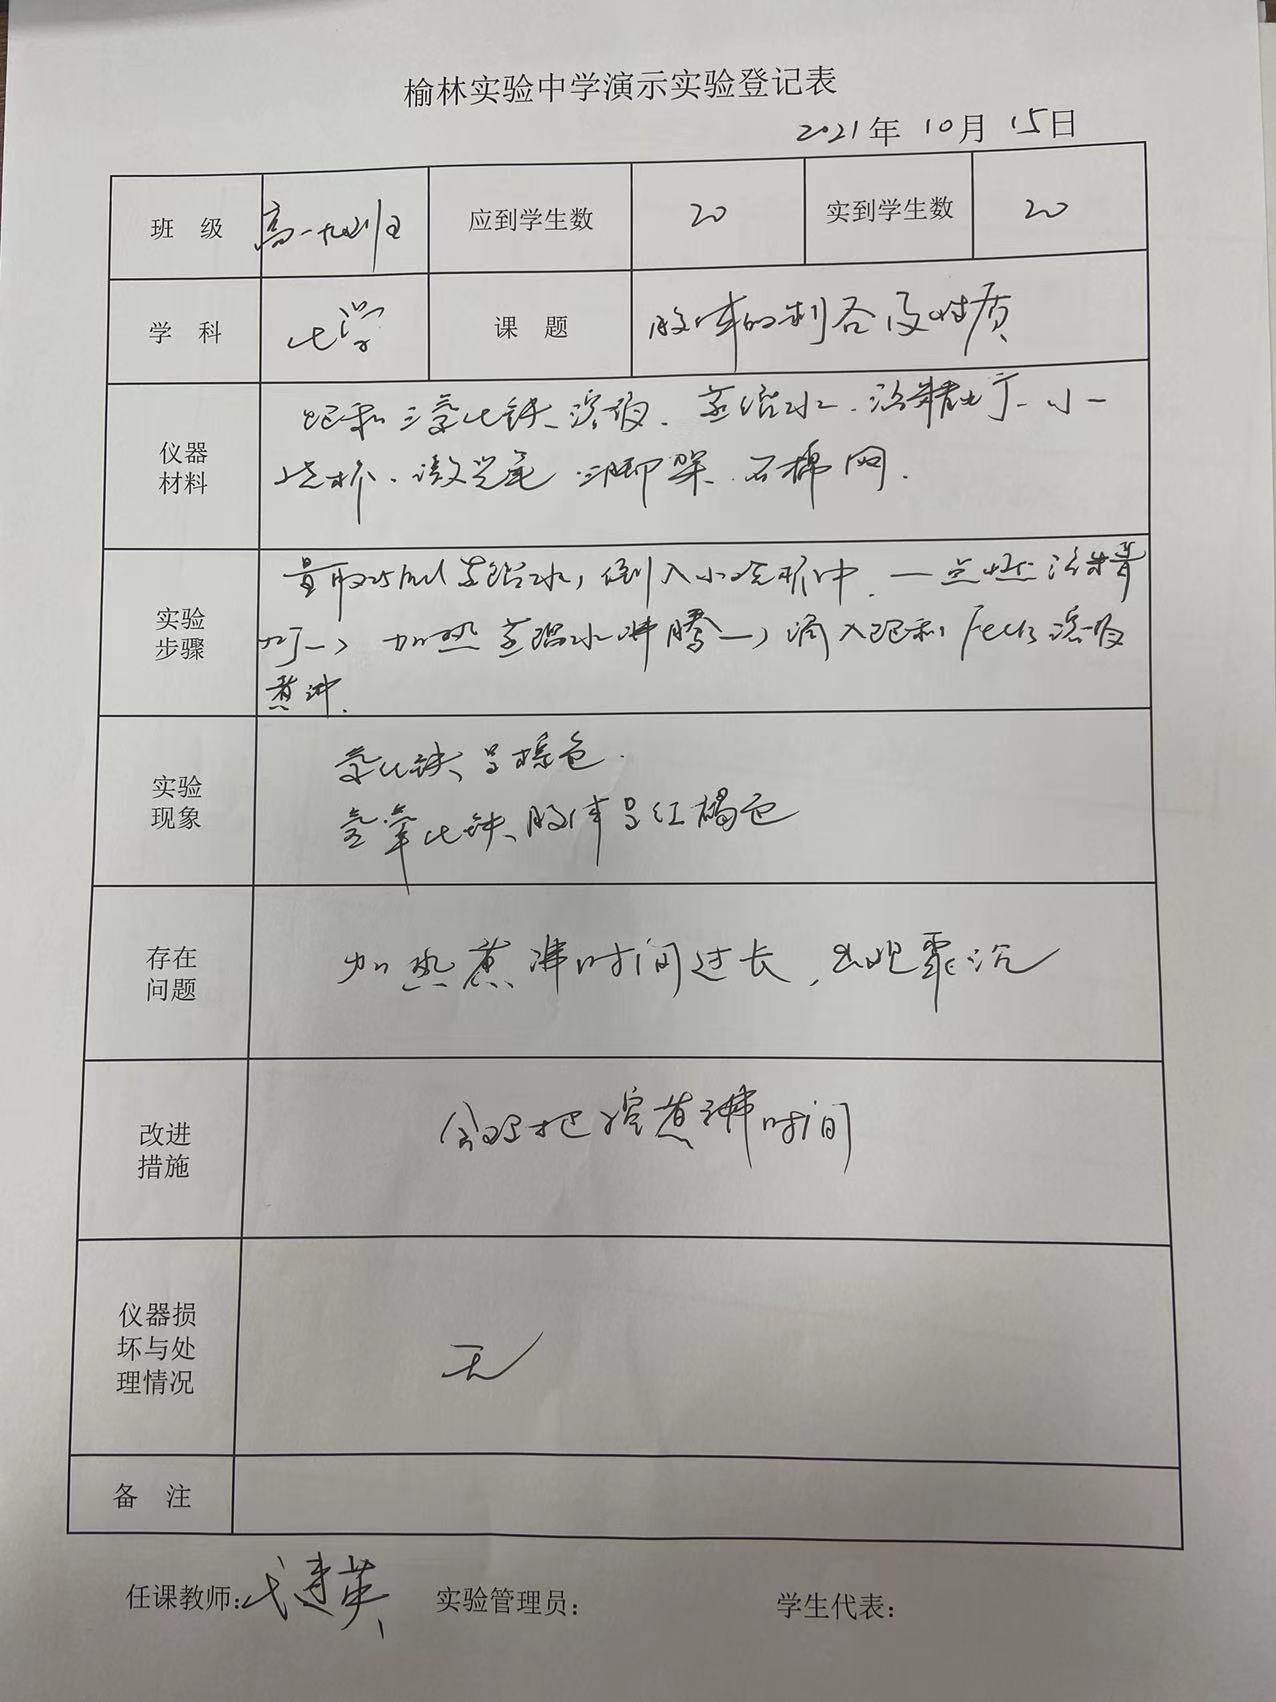 榆林实验中学演示实验登记表
2021年 10月 15日
班 级 高一九班 应到学生数 20 实到学生数 20
学 科 化学 课 题 胶体的制备及性质
仪器
材料
饱和三氯化铁溶液、蒸馏水、酒精灯、小
烧杯、激光笔 三脚架、石棉网.
实验
步骤
量取25ml蒸馏水,倒入小烧杯中. — 点燃酒精
灯—> 加热蒸馏水沸腾—>滴入饱和FeCl3溶液
煮沸.
实验
现象
氯化铁呈棕色.
氢氧化铁胶体呈红褐色
存在
问题
加热煮沸时间过长,出现聚沉
改进
措施
合理把控煮沸时间
仪器损
坏与处
理情况
无
备 注
任课教师: 建英 实验管理员: 学生代表: